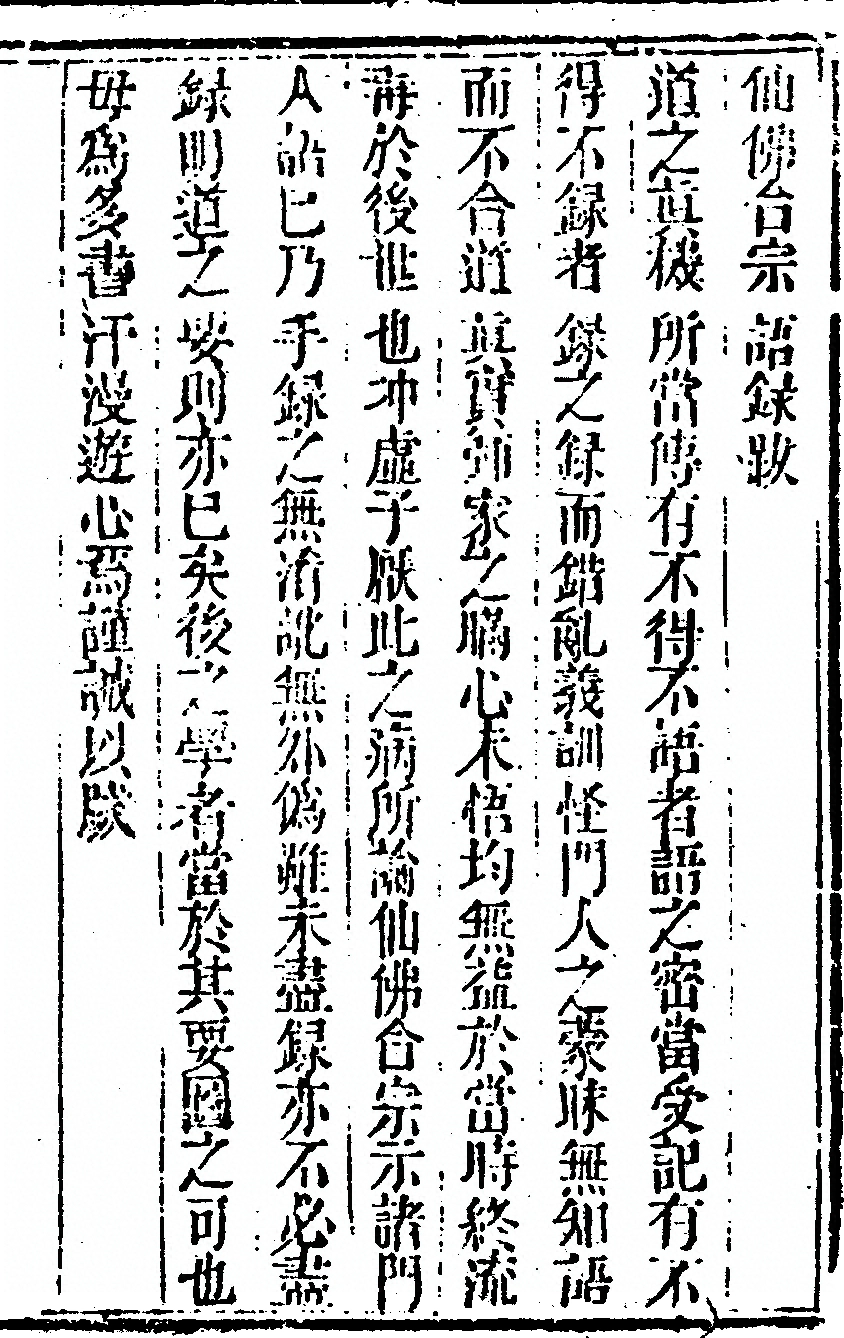 仙佛合宗語録跋
道之真機所當傳有不得不語者語之密當受記有不
得不録者録之録而錯亂義訓怪門人之蒙昧無知語
而不合道真實如家之瞞心未悟均無益於當時終流
毒於後世也冲虛子厭此之病所論仙佛合宗示諸門
人語已乃手録之無淆訛無外偽雖未盡録亦不必盡
録明道之要則亦已矣後之學者當於其要圖之可也
毋為多書汗漫遊心焉謹誠以跋